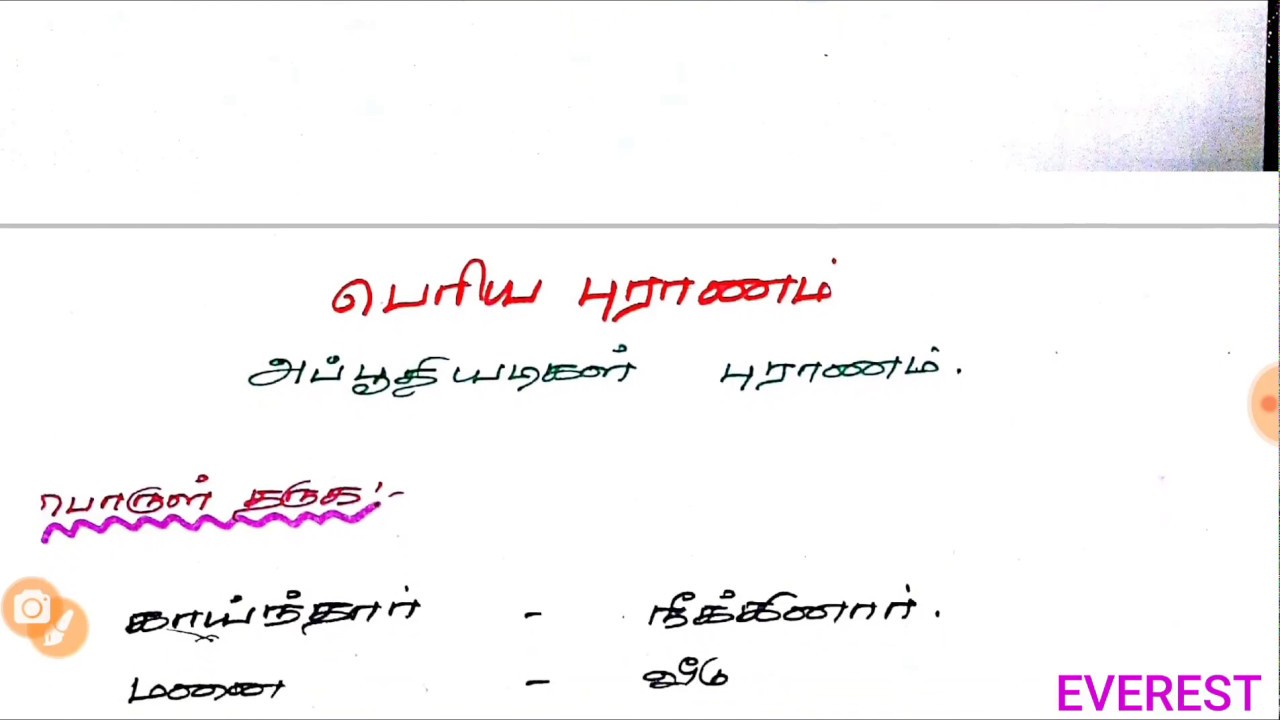 பெரிய புராணம்
அப்பூதியடிகள் புராணம்.
பொருள் தருக:-
காய்ந்தார் - நீக்கினார்.
மனை - வீடு
EVEREST